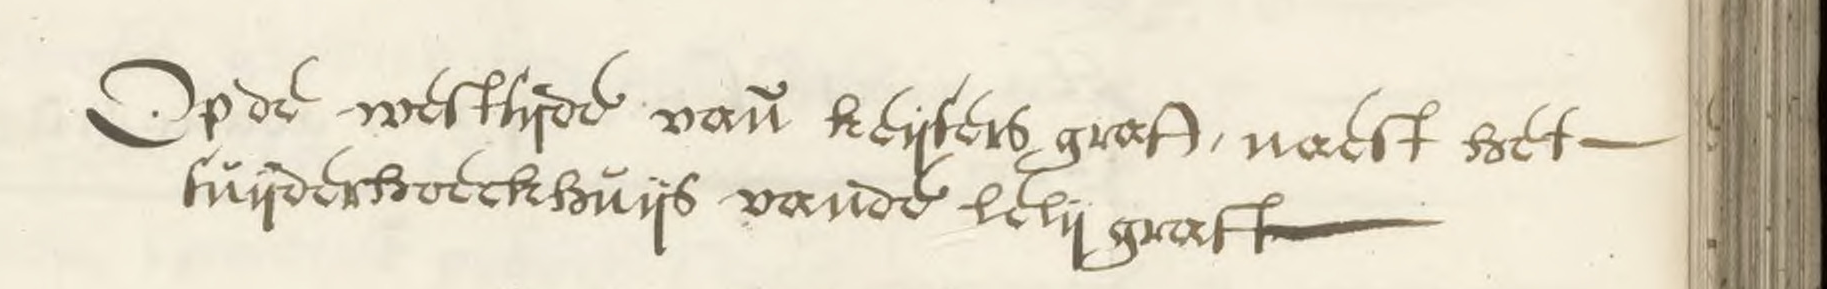 Op de westsijde van keijsers graft, naest het
suijderhoeckhuijs vande lelij graft